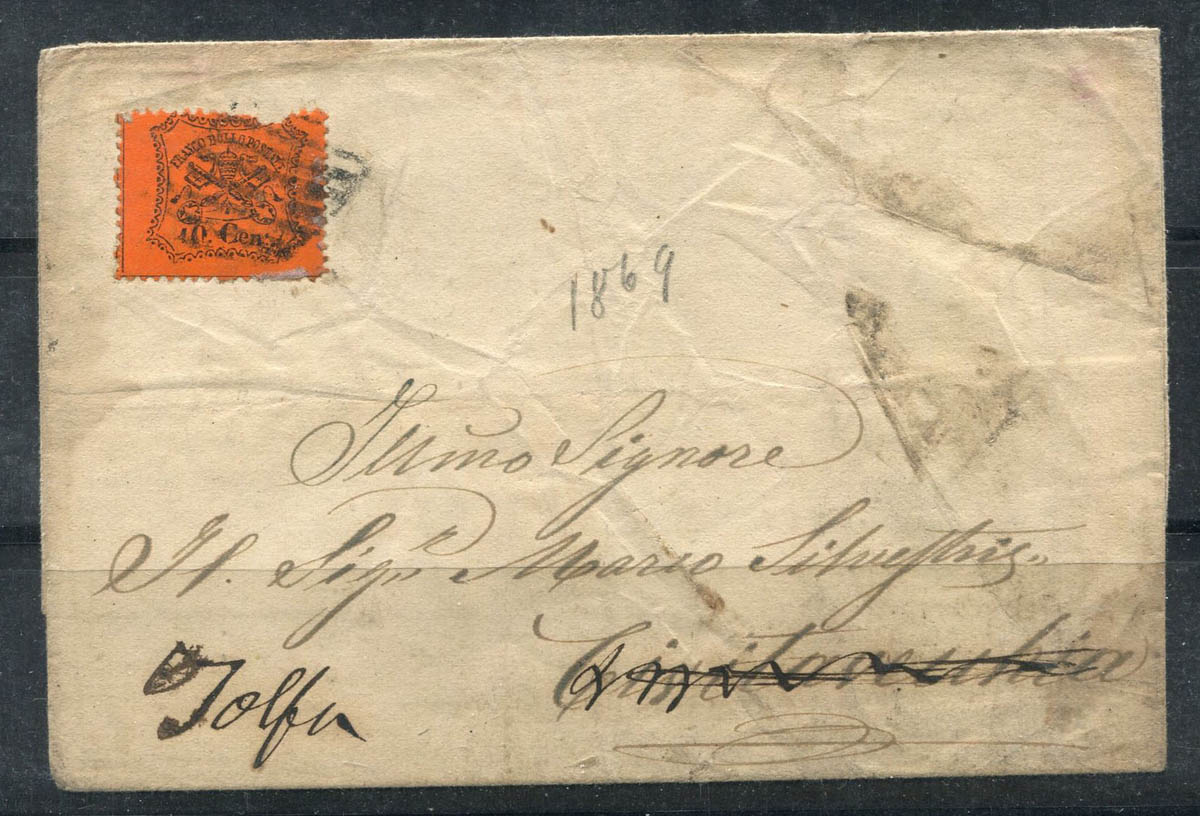 FRANCO BOLLO POSTALE
10 Cent.
1869
Illmo Signore
Il Sigr Marco Silvestri
Civitavecchia
Tolfa